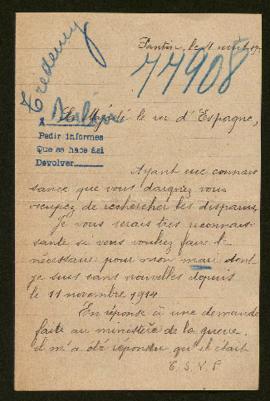 Pantin, le 1 août 19
77908
Sa Majesté le roi d'Espagne,
A
Pedir informes
Que se hace así
Devolver
Ayant eue connais
sance que vous daignez vous
occupez de rechercher les disparus,
Je vous serais très reconnais
sante si vous vouliez faire le
nécessaire pour mon mari dont
je suis sans nouvelles depuis
le 11 novembre 1914.
En réponse à une demande
faite au ministère de la guerre,
il m'a été répondu qu'il était
T. S. V. P.